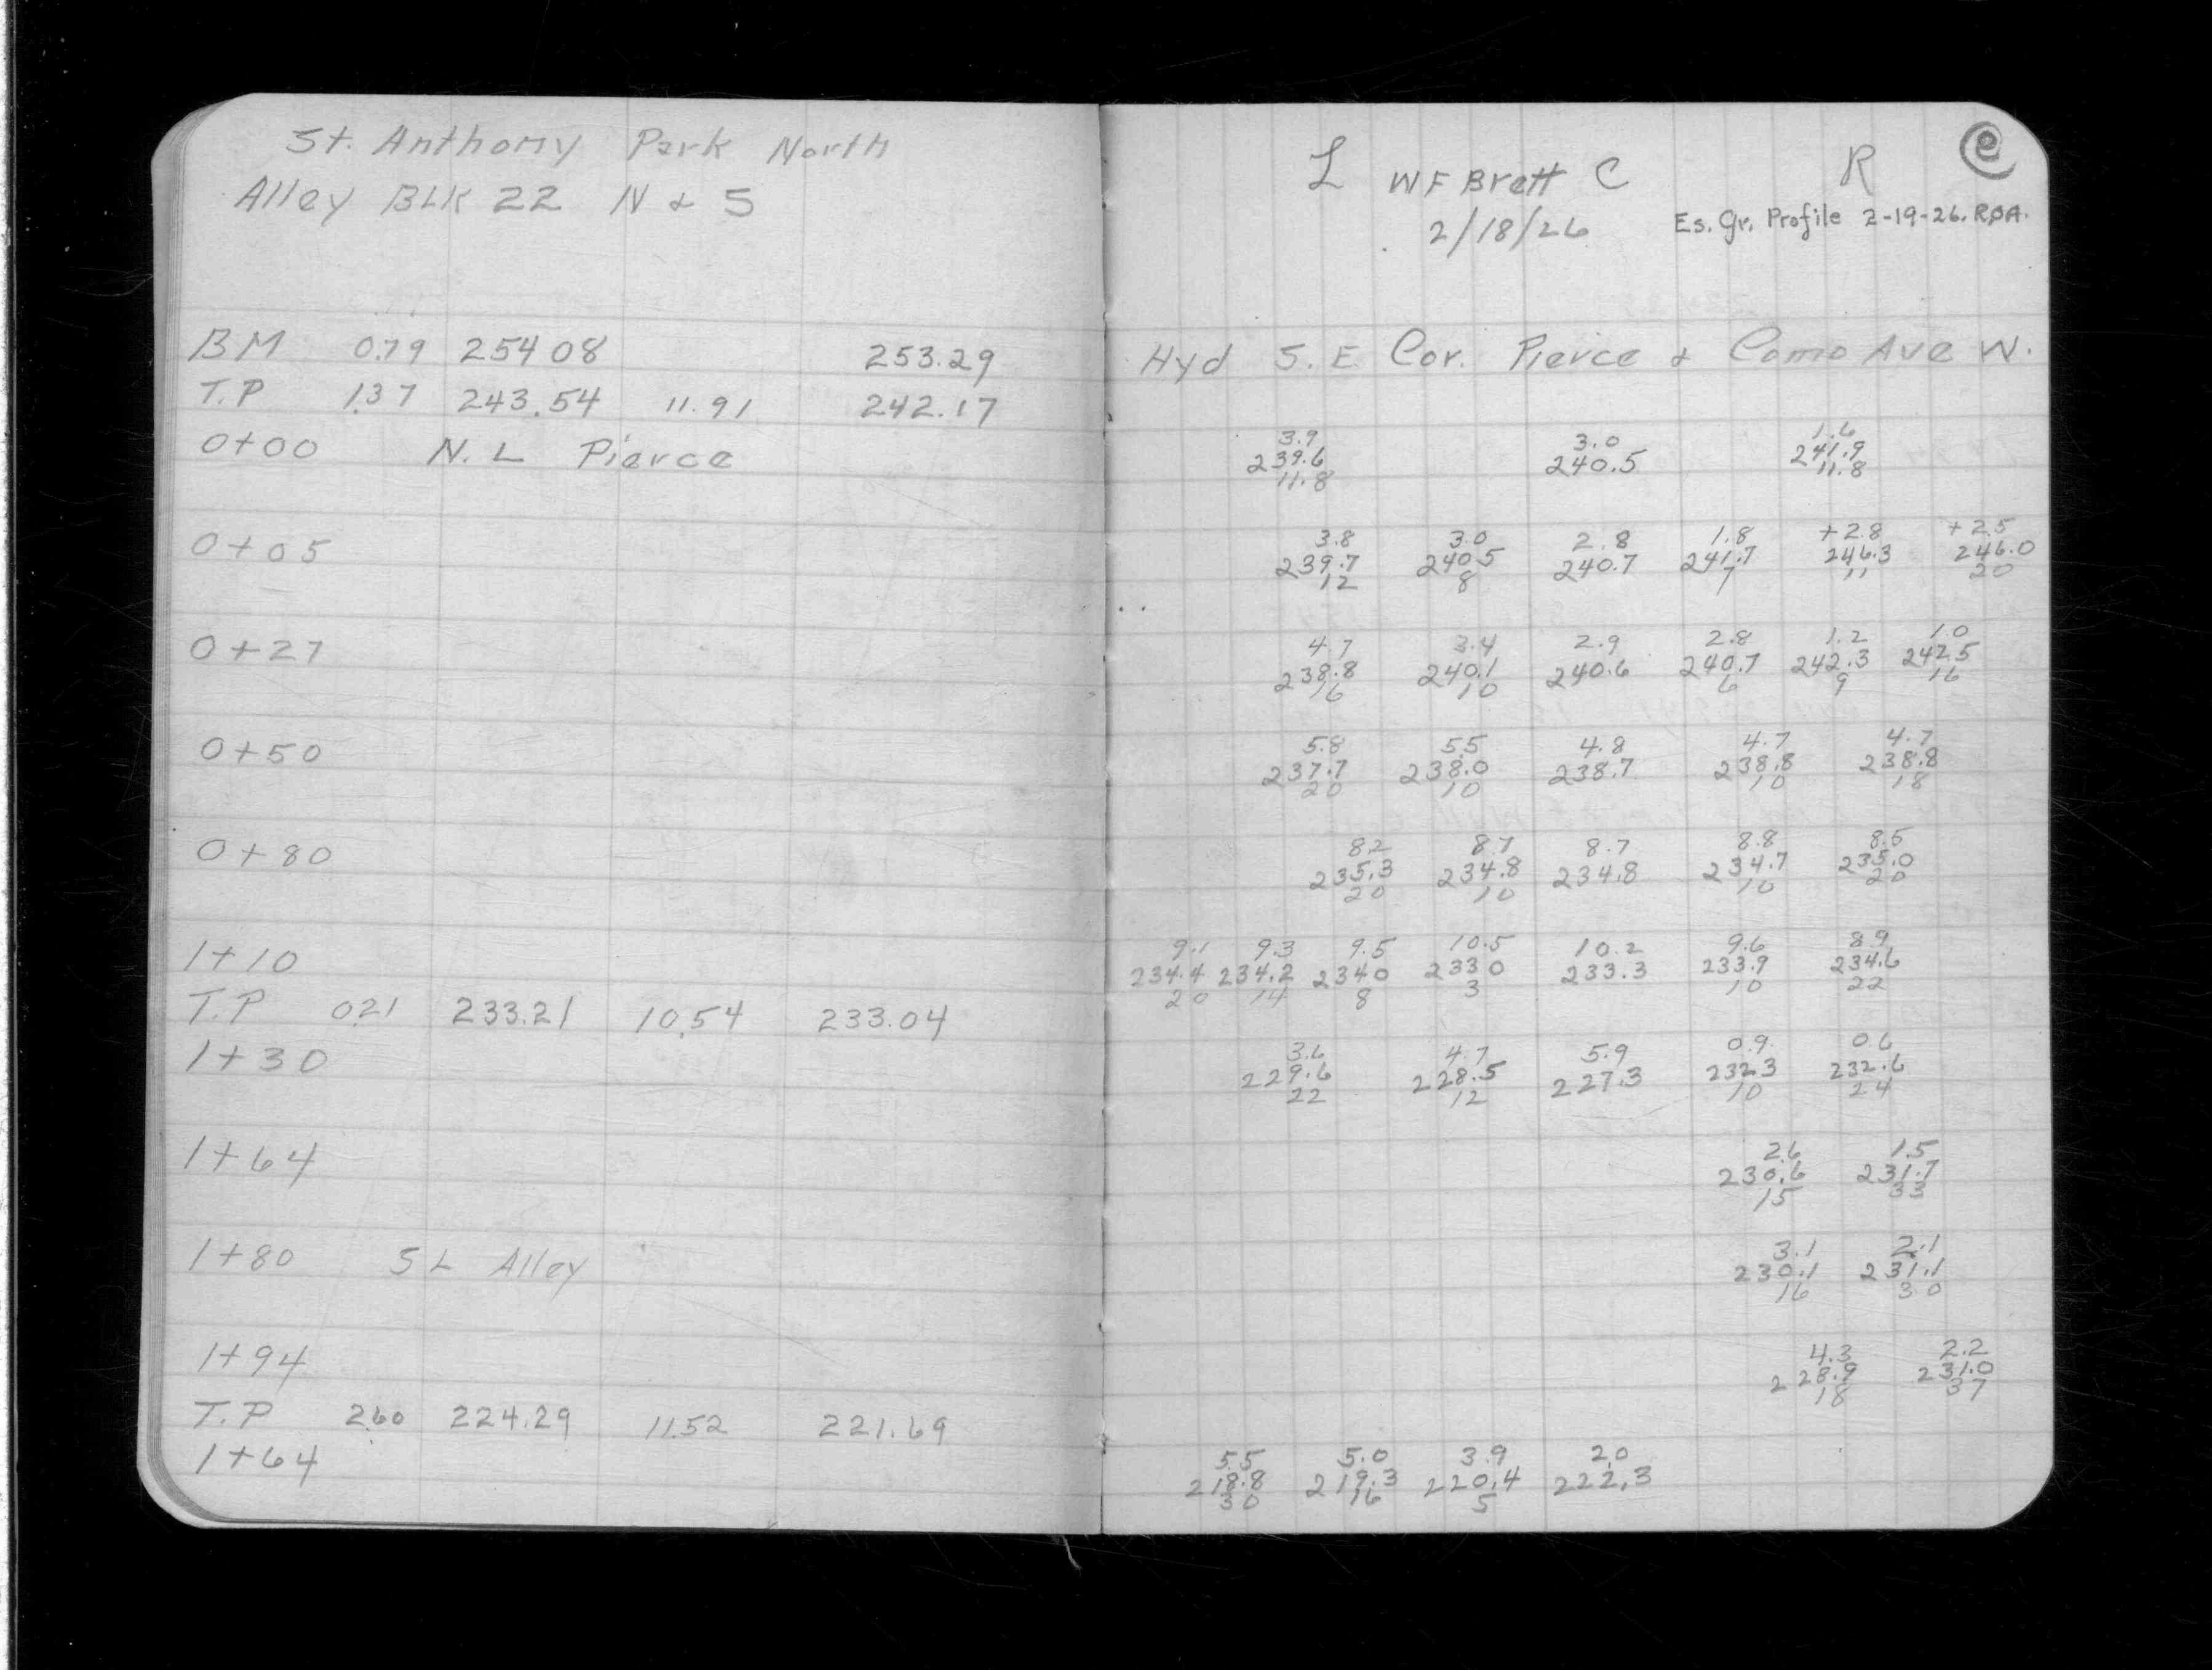 St. Anthony Park North
Alley BLK 22 N & S
BM 0.79 254 08 253.29
T.P 1.37 243.54 11.91 242.17
0+00 N. L Pierce
0+05
0+27
0+50
0+80
1+10
T.P 0.21 233.21 10.54 233.04
1+30
1+64
1+80 S L Alley
1+94
T.P 2.60 224.29 11.52 221.69
1+64
L WF Brett C R e
2/18/26 Es. Gr. Profile 2-19-26. ROA.
Hyd S. E Cor. Pierce & Como Ave W.
3.9 3.0 1.6
239.6 240.5 241.9
11.8 11.8
3.8 3.0 2.8 1.8 +2.8 +2.5
239.7 240.5 240.7 241.7 246.3 246.0
12 8 7 11 20
4.7 3.4 2.9 2.8 1.2 1.0
238.8 240.1 240.6 240.7 242.3 242.5
16 10 6 9 16
5.8 5.5 4.8 4.7 4.7
237.7 238.0 238.7 238.8 238.8
20 10 10 18
8.2 8.7 8.7 8.8 8.5
235.3 234.8 234.8 234.7 235.0
20 10 10 20
9.1 9.3 9.5 10.5 10.2 9.6 8.9
234.4 234.2 234 0 233 0 233.3 233.9 234.6
20 14 8 3 10 22
3.6 4.7 5.9 0.9 0.6
229.6 228.5 227.3 232.3 232.6
22 12 10 24
2.6 1.5
230.6 231.7
15 33
3.1 2.1
230.1 231.1
16 30
4.3 2.2
228.9 231.0
18 37
5.5 5.0 3.9 2.0
218.8 219.3 220.4 222.3
30 16 5